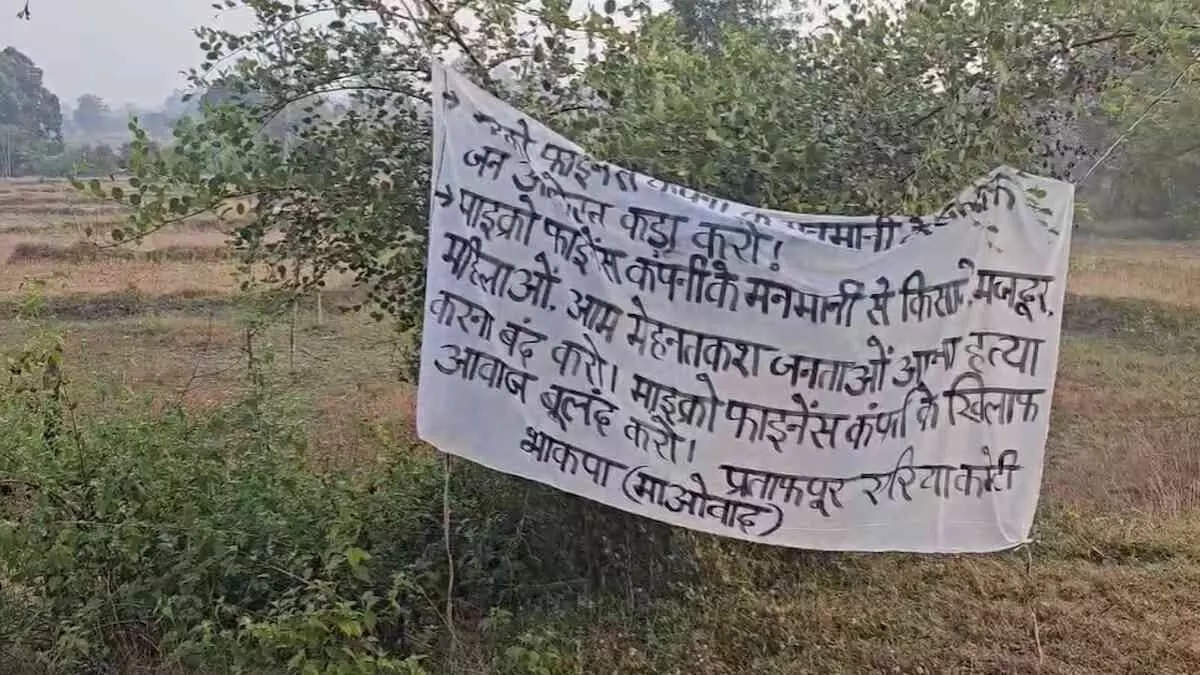 फाइनेंस मनमानी
जन कड़ा करो!
→ माइक्रो फाइनेंस कंपनी के मनमानी से किसान, मजदूर,
महिलाओं, आम मेहनतकश जनताओं आत्मा हत्या
करना बंद करो। माइक्रो फाइनेंस कंपनी के खिलाफ
आवाज बूलंद करो।
प्रतापपूर एरिया कमेटी
भाकपा (माओवाद)